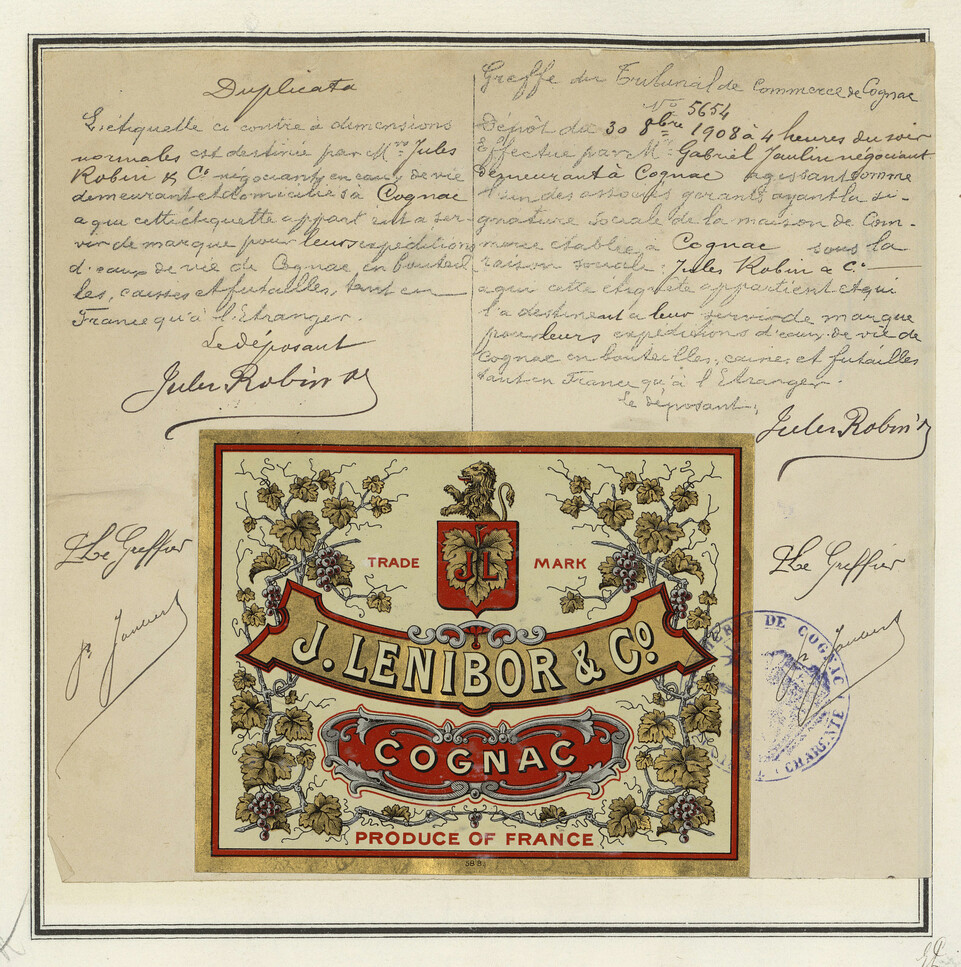 Duplicata
L'étiquette ci contre à dimensions
normales est destinée par Mrs Jules
Robin & Co négociants en eaux de vie
demeurant et domiciliés à Cognac
a qui cette étiquette appartient a ser-
vir de marque pour leurs expéditions
d'eaux de vie de Cognac en bouteil
les, caisses et futailles, tant en
France qu'à l'Etranger.
Le déposant
Jules Robin
Greffe du Tribunal de Commerce de Cognac
No 5654
Dépôt du 30 8bre 1908 à 4 heures du soir
Effectué par Mr Gabriel Jaulin négociant
demeurant à Cognac agissant comme
l'un des associés gérants ayant la si-
gnature sociale de la maison de Com-
merce établie à Cognac sous la
raison sociale Jules Robin & Co
a qui cette étiquette appartient et qui
l'a destinent a leur servir de marque
pour leurs expéditions d'eaux de vie de
Cognac en bouteilles, caisses et futailles
tant en France qu'à l'Etranger.
Le déposant,
Jules Robin
Le Greffier
Le Greffier
TRADE MARK
JL
J. LENIBOR & Co.
COGNAC
PRODUCE OF FRANCE
DE COGNAC
CHARENTE